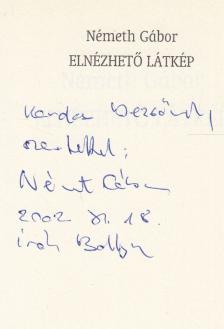 Németh Gábor
ELNÉZHETŐ LÁTKÉP
Kardos Dezsőnek,
szeretettel:
Németh Gábor
2002 XI. 18.
Írók Boltja